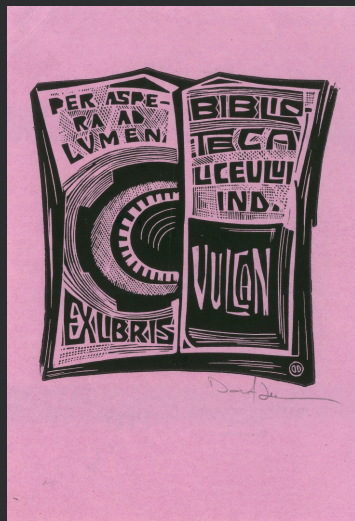 PER ASPE-
RA AD
LUMEN
EXLIBRIS
BIBLIO-
TECA
LICEULUI
IND.
VULCAN